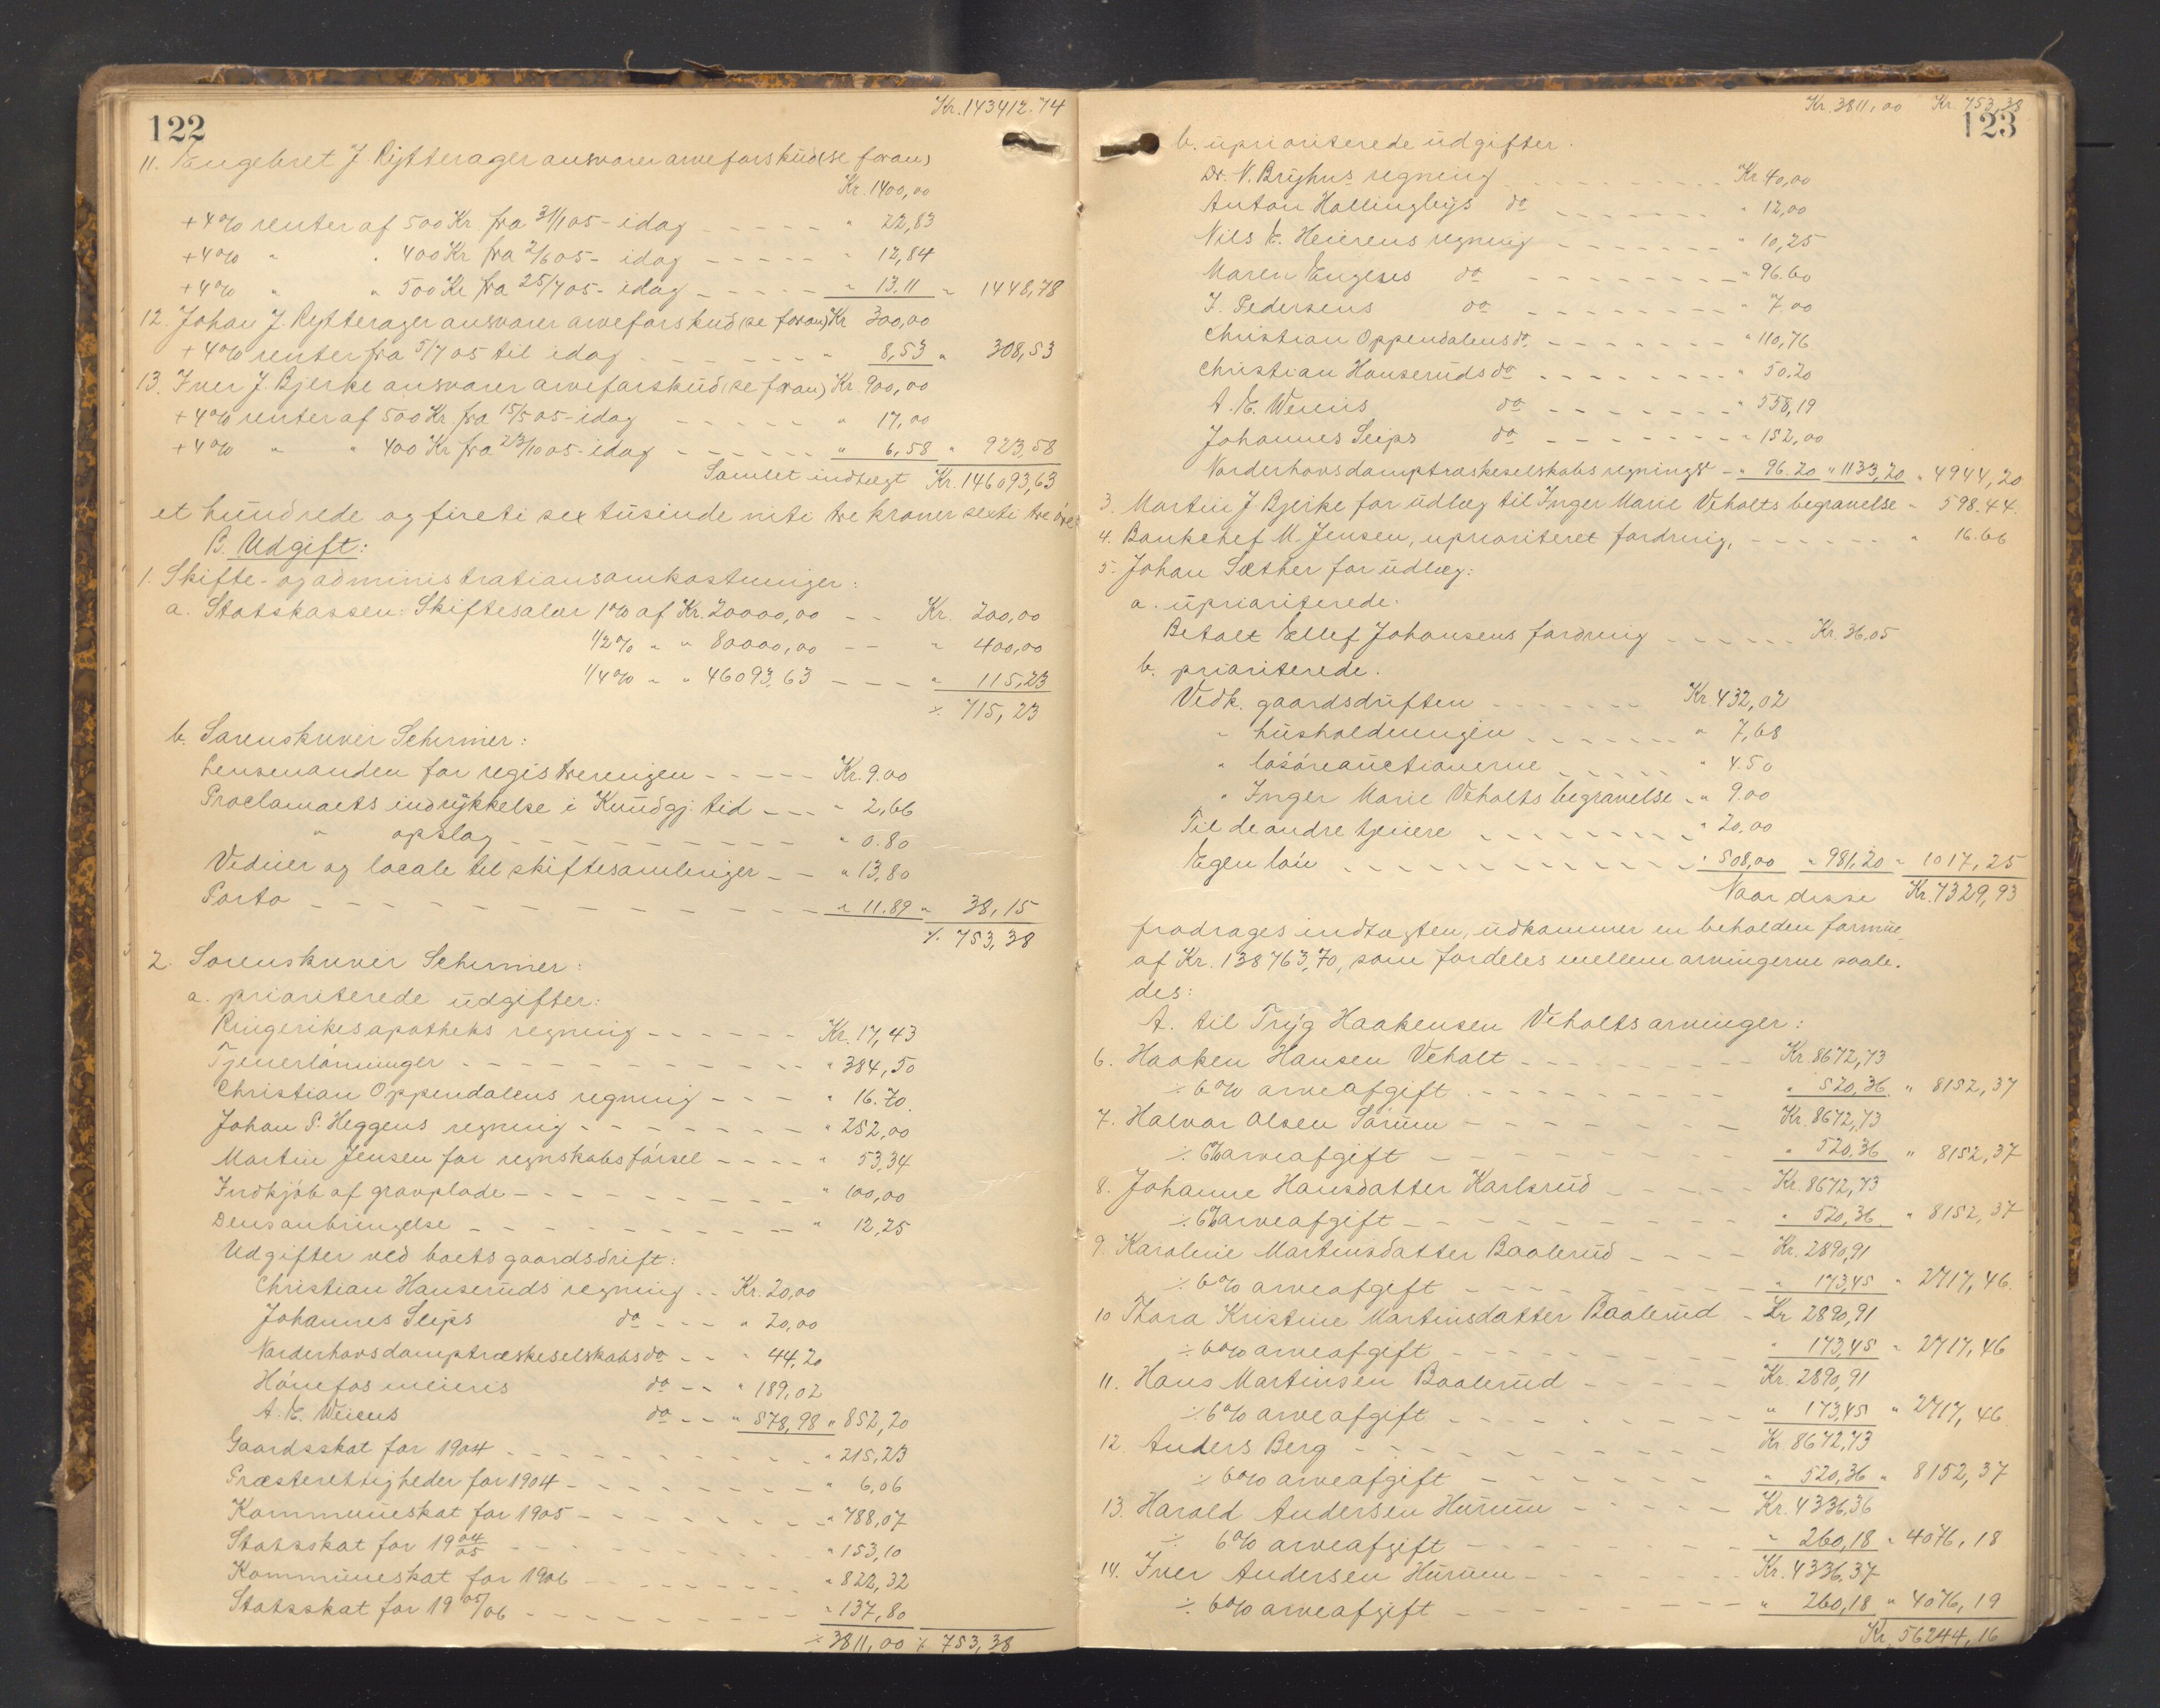 122
Kr. 143412.74
11. Engebret J. Rytterager ansvarer arveforskud (se foran)
Kr. 1400,00
+ 4% renter af 500 Kr. fra 31/1 05 - idag - - - - - " 22,83
+ 4% " " 400 Kr fra 2/6 05 - idag - - - - - " 12,84
+ 4% " " 500 Kr fra 25/7 05 - idag - - - - - " 13.11 " 1448,78
12. Johan J. Rytterager ansvarer arveforskud (se foran) Kr 300,00
+ 4% renter fra 5/7 05 til idag - - - - - - - " 8,53 " 308,53
13. Iver J. Bjerke ansvarer arveforskud (se foran) Kr. 900,00
+ 4% renter af 500 Kr. fra 15/5 05 - idag - - - - - " 17,00
+ 4% " " 400 Kr fra 23/10 05 - idag - - - - - - " 6,58 " 923,58
Samlet indtægt Kr. 146093,63
et hundrede og fireti sex tusinde niti tre kroner sexti tre øre.
B. Udgift:
1. Skifte- og administrationsomkostninger:
a. Statskassen: Skiftesalær 1% af Kr. 20000,00 - - Kr. 200,00
1/2% " " 80000,00 - - " 400,00
1/4% " " 46093,63 - - - " 115,23
⁒ 715,23
b. Sorenskriver Schirmer:
Lensmanden for registreringen - - - - - Kr. 9.00
Proclamaets indrykkelse i Kundgj. tid - - - " 2,66
" opslag - - - - - - - - - " 0.80
Vidner og locale til skiftesamlinger - - " 13,80
Porto - - - - - - - - - - - - " 11.89 " 38,15
⁒ 753,38
2. Sorenskriver Schirmer:
a. prioriterede udgifter:
Ringerikes apotheks regning - - - - - Kr. 17,43
Tjenerlønninger - - - - - - - - - - - " 384,50
Christian Oppendalens regning - - - " 16.70.
Johan P. Heggens regning - - - - - - - " 252,00
Martin Jensen for regnskabsførsel - - - - " 53,34
Indkjøb af gravplade - - - - - - - - " 100,00
Dens anbringelse - - - - - - - - - - " 12,25
Udgifter ved boets gaardsdrift:
Christian Hanseruds regning - - Kr. 20,00
Johannes Seips do - - - " 20,00
Norderhovs damptræskeselskabs do - - " 44,20
Hønefos meieris do - - " 189,02
A. E. Weiens do - - " 578,98 " 852,20
Gaardsskat for 1904 - - - - - - - - - - " 215,23
Præsterettigheder for 1904 - - - - - - - - " 6,06
Kommuneskat for 1905 - - - - - - - - " 788,07
Statsskat for 19 04/05 - - - - - - - - - - " 153,10
Kommuneskat for 1906 - - - - - - - - " 822,32
Statsskat for 19 05/06 - - - - - - - - - " 137,80
⁒ 3811,00 ⁒ 753,38
Kr. 3811,00 Kr. 753,38
123
b. uprioriterede udgifter.
Dr. N. Bryhns regning - - - - - - - - - Kr 40,00
Anton Hallingbys do - - - - - - - " 12,00
Nils E. Heierens regning - - - - - - - " 10,25
Maren Engeses do - - - - - - - - " 96.60
J. Pedersens do - - - - - - - - " 7,00
Christian Oppendalens do. - - - - - - - " 110,76
Christian Hanseruds do - - - - - - - - " 50.20
A. E. Weiens do - - - - - - - " 558,19
Johannes Seips do - - - - - - - " 152,00
Norderhovs damptræskeselskabs regning - " 96.20 " 1133,20 " 4944,20
3. Martin J Bjerke for udlæg til Inger Marie Veholts begravelse " 598.44.
4. Bankchef M. Jensen, uprioriteret fordring, - - - - - - " 16.66
5. Johan Sæther for udlæg:
a. uprioriterede:
Betalt Ellef Johansens fordring - - - - - Kr. 36,05
b. prioriterede.
Vedk. gaardsdriften - - - - - - - Kr. 432,02
" husholdningen - - - - - - " 7,68
" løsøreauctionerne - - - - - " 4.50
" Inger Marie Veholts begravelse - " 9.00
Til de andre tjenere - - - - - - - - " 20.00
Egen løn - - - - - - - - - - - - " 508,00 " 981,20 " 1017,25
Naar disse Kr. 7329,93
fradrages indtægten, udkommer en beholden formue
af Kr. 138763,70, som fordeles mellem arvingerne saale-
des:
A. til Tryg Haakensen Veholts arvinger:
6. Haaken Hansen Veholt - - - - - - - Kr. 8672,73
⁒ 6% arveafgift - - - - - - - - - " 520,36 " 8152,37
7. Halvor Olsen Sørum - - - - - - - - Kr. 8672,73
⁒ 6% arveafgift - - - - - - - - - " 520,36 " 8152,37
8. Johanne Hansdatter Karlsrud - - - - - Kr. 8672,73
⁒ 6% arveafgift - - - - - - - - - - " 520,36 " 8152,37
9. Karoline Martinsdatter Baalerud - - - - Kr. 2890,91
⁒ 6% arveafgift - - - - - - - - - " 173,45 " 2717,46.
10 Thora Kristine Martinsdatter Baalerud - Kr 2890,91
⁒ 6% arveafgift - - - - - - - - - " 173,45 " 2717,46
11. Hans Martinsen Baalerud - - - - - Kr. 2890,91
⁒ 6% arveafgift - - - - - - - - - " 173,45 " 2717,46
12. Anders Berg - - - - - - - - - - - Kr. 8672,73
⁒ 6% arveafgift - - - - - - - - " 520,36 " 8152,37
13. Harald Andersen Hurum - - - - - Kr. 4336,36
⁒ 6% arveafgift - - - - - - - - " 260,18 " 4076,18
14. Iver Andersen Hurum - - - - - - Kr. 4336,37
⁒ 6% arveafgift - - - - - - - - - " 260,18 " 4076,19
Kr. 56244,16